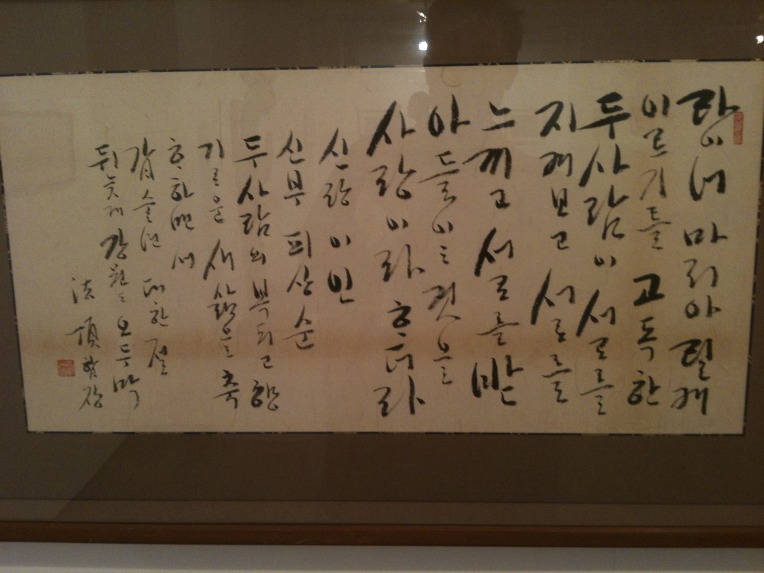 라이너 마리아 릴케
이르기를 고독한
두 사람이 서로를
지켜보고 서로를
느끼고 서로를 받
아들이는 것을
사랑이라 하더라
신랑 이인
신부 피상순
두 사람의 복되고 향
기로운 새 삶을 축
하하면서
갑술년 대한절
뒤늦게 강원도 오두막
法頂 합장